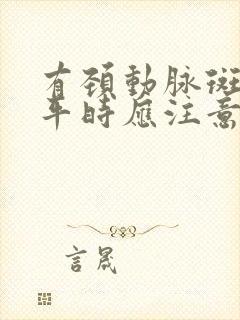 有颈動脉斑
平時應注意
言晟